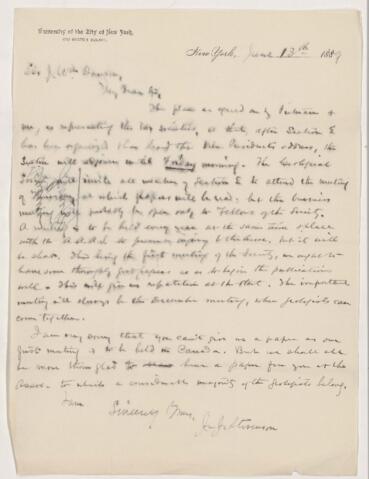 University of the City of New York,
New York, June 13th 1889
Sir J. Wm Dawson,
My Dear Sir,
The plan as agreed on by
me, as representing the two societies, is that, after Section E
has been organized & has heard the Vice President's address, the
Section will adjourn until Friday morning. The Geological
Society will invite all members of Section E to attend the meeting
of Thursday at which papers will be read; but the business
meeting will probably be open only to Fellows of the Society.
A meeting is to be held every year at the same time & place
with the A.A.A.S. but it will
be short. This being the first meeting of the Society, we ought to
have some thoroughly good papers so as to begin the publications
well. This will give us reputation at the start. The important
meeting will always be the December meeting, when geologists can
come together.
I am very sorry that you can't give us a paper as our
first meeting is to be held in Canada. But we shall all
be more than glad to hear a paper from you at the
to which a considerable majority of the geologists belong.
I am
Sincerely Yours,
Jn J Stevenson